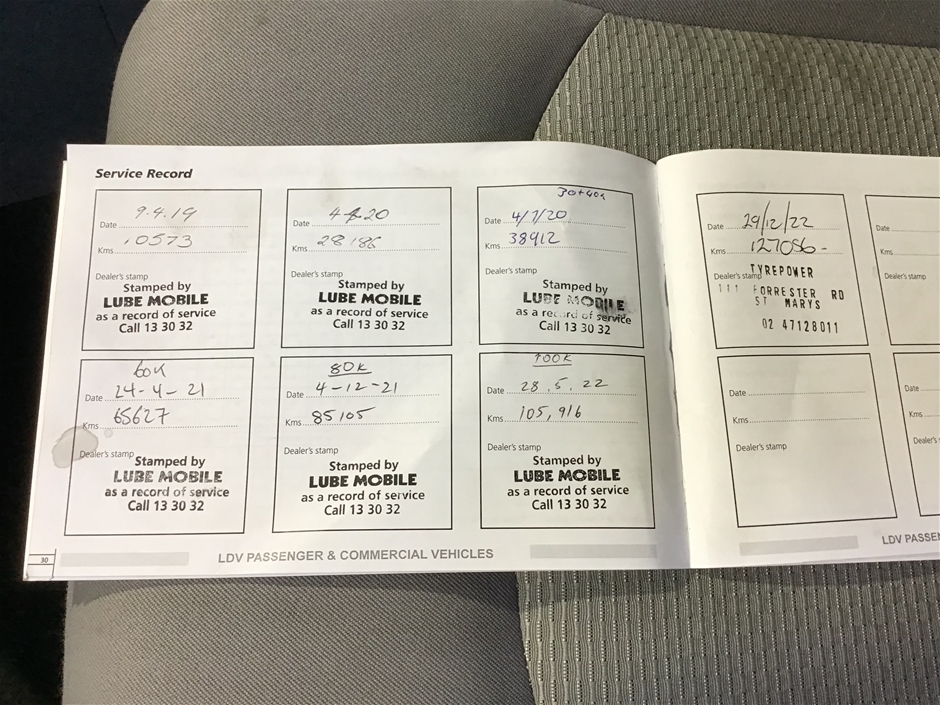 Service Record
Date 9.4.19
Kms 10573
Dealer's stamp
Stamped by
LUBE MOBILE
as a record of service
Call 13 30 32
Date
Kms 28186
Dealer's stamp
Stamped by
LUBE MOBILE
as a record of service
Call 13 30 32
30+40k
Date 4/7/20
Kms 38912
Dealer's stamp
Stamped by
LUBE MOBILE
as a record of service
Call 13 30 32
60K
Date 24-4-21
Kms 65627
Dealer's stamp
Stamped by
LUBE MOBILE
as a record of service
Call 13 30 32
80K
Date 4-12-21
Kms 85105
Dealer's stamp
Stamped by
LUBE MOBILE
as a record of service
Call 13 30 32
100K
Date 28.5.22
Kms 105,916
Dealer's stamp
Stamped by
LUBE MOBILE
as a record of service
Call 13 30 32
30
LDV PASSENGER & COMMERCIAL VEHICLES
Date 29/12/22
Kms 127056-
Dealer's stamp
TYREPOWER
111 FORRESTER RD
ST MARYS
02 47128011
Date
Kms
Dealer's stamp
Date
Kms
Dealer's stamp
Date
Kms
Dealer's
LDV